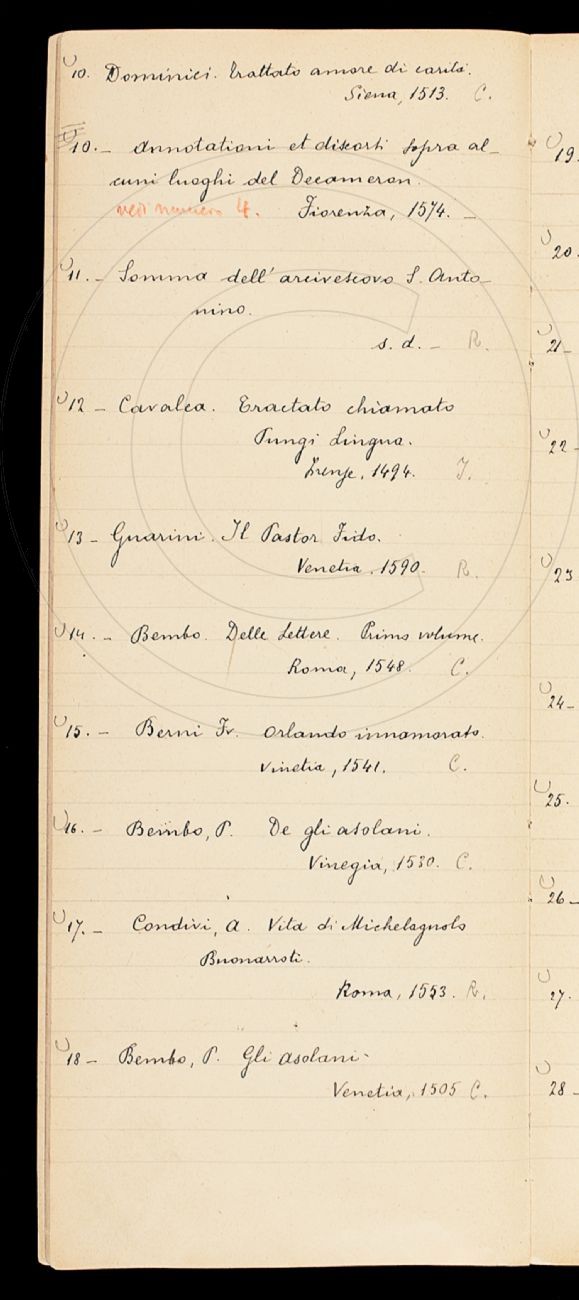 10. Dominici. Trattato amore di carità.
Siena, 1513. C.
10. - Annotationi et discorsi sopra al-
cuni luoghi del Decameron.
vedi numero 4. Fiorenza, 1574. -
11. - Somma dell'arcivescovo S. Anto-
nino.
s. d. - R.
12 - Cavalca. Tractato chiamato
Pungi Lingua.
Firenze, 1494. I.
13 - Guarini. Il Pastor Fido.
Venetia, 1590. R.
14. - Bembo. Delle Lettere. Primo volume.
Roma, 1548. C.
15. - Berni Fr. Orlando innamorato.
Vinetia, 1541. C.
16. - Bembo, P. De gli asolani.
Vinegia, 1530. C.
17. - Condivi, A. Vita di Michelagnolo
Buonarroti.
Roma, 1553. R.
18 - Bembo, P. Gli Asolani-
Venetia, 1505 C.
19.
20.
21-
22-
23
24-
25.
26-
27.
28-